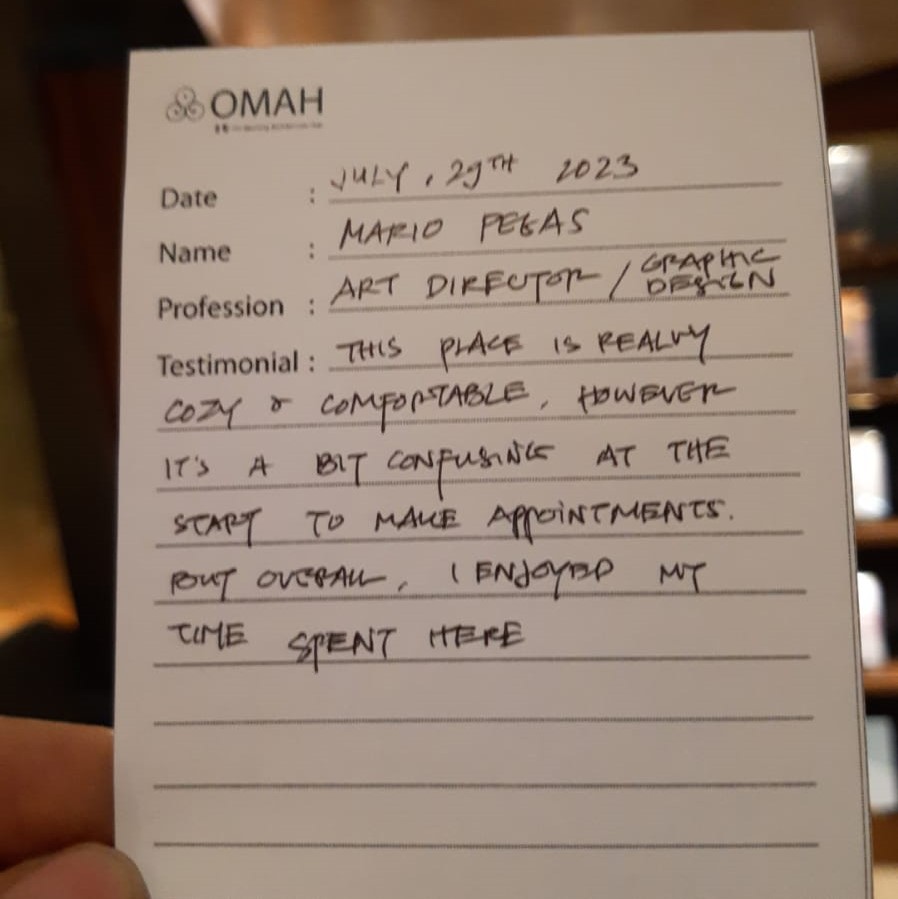 OMAH
Date : JULY, 29TH 2023
Name : MARIO PEGAS
Profession : ART DIRECTOR / GRAPHIC DESIGN
Testimonial : THIS PLACE IS REALLY
COZY & COMFORTABLE, HOWEVER
IT'S A BIT CONFUSING AT THE
START TO MAKE APPOINTMENTS.
BUT OVERALL, I ENJOYED MY
TIME SPENT HERE